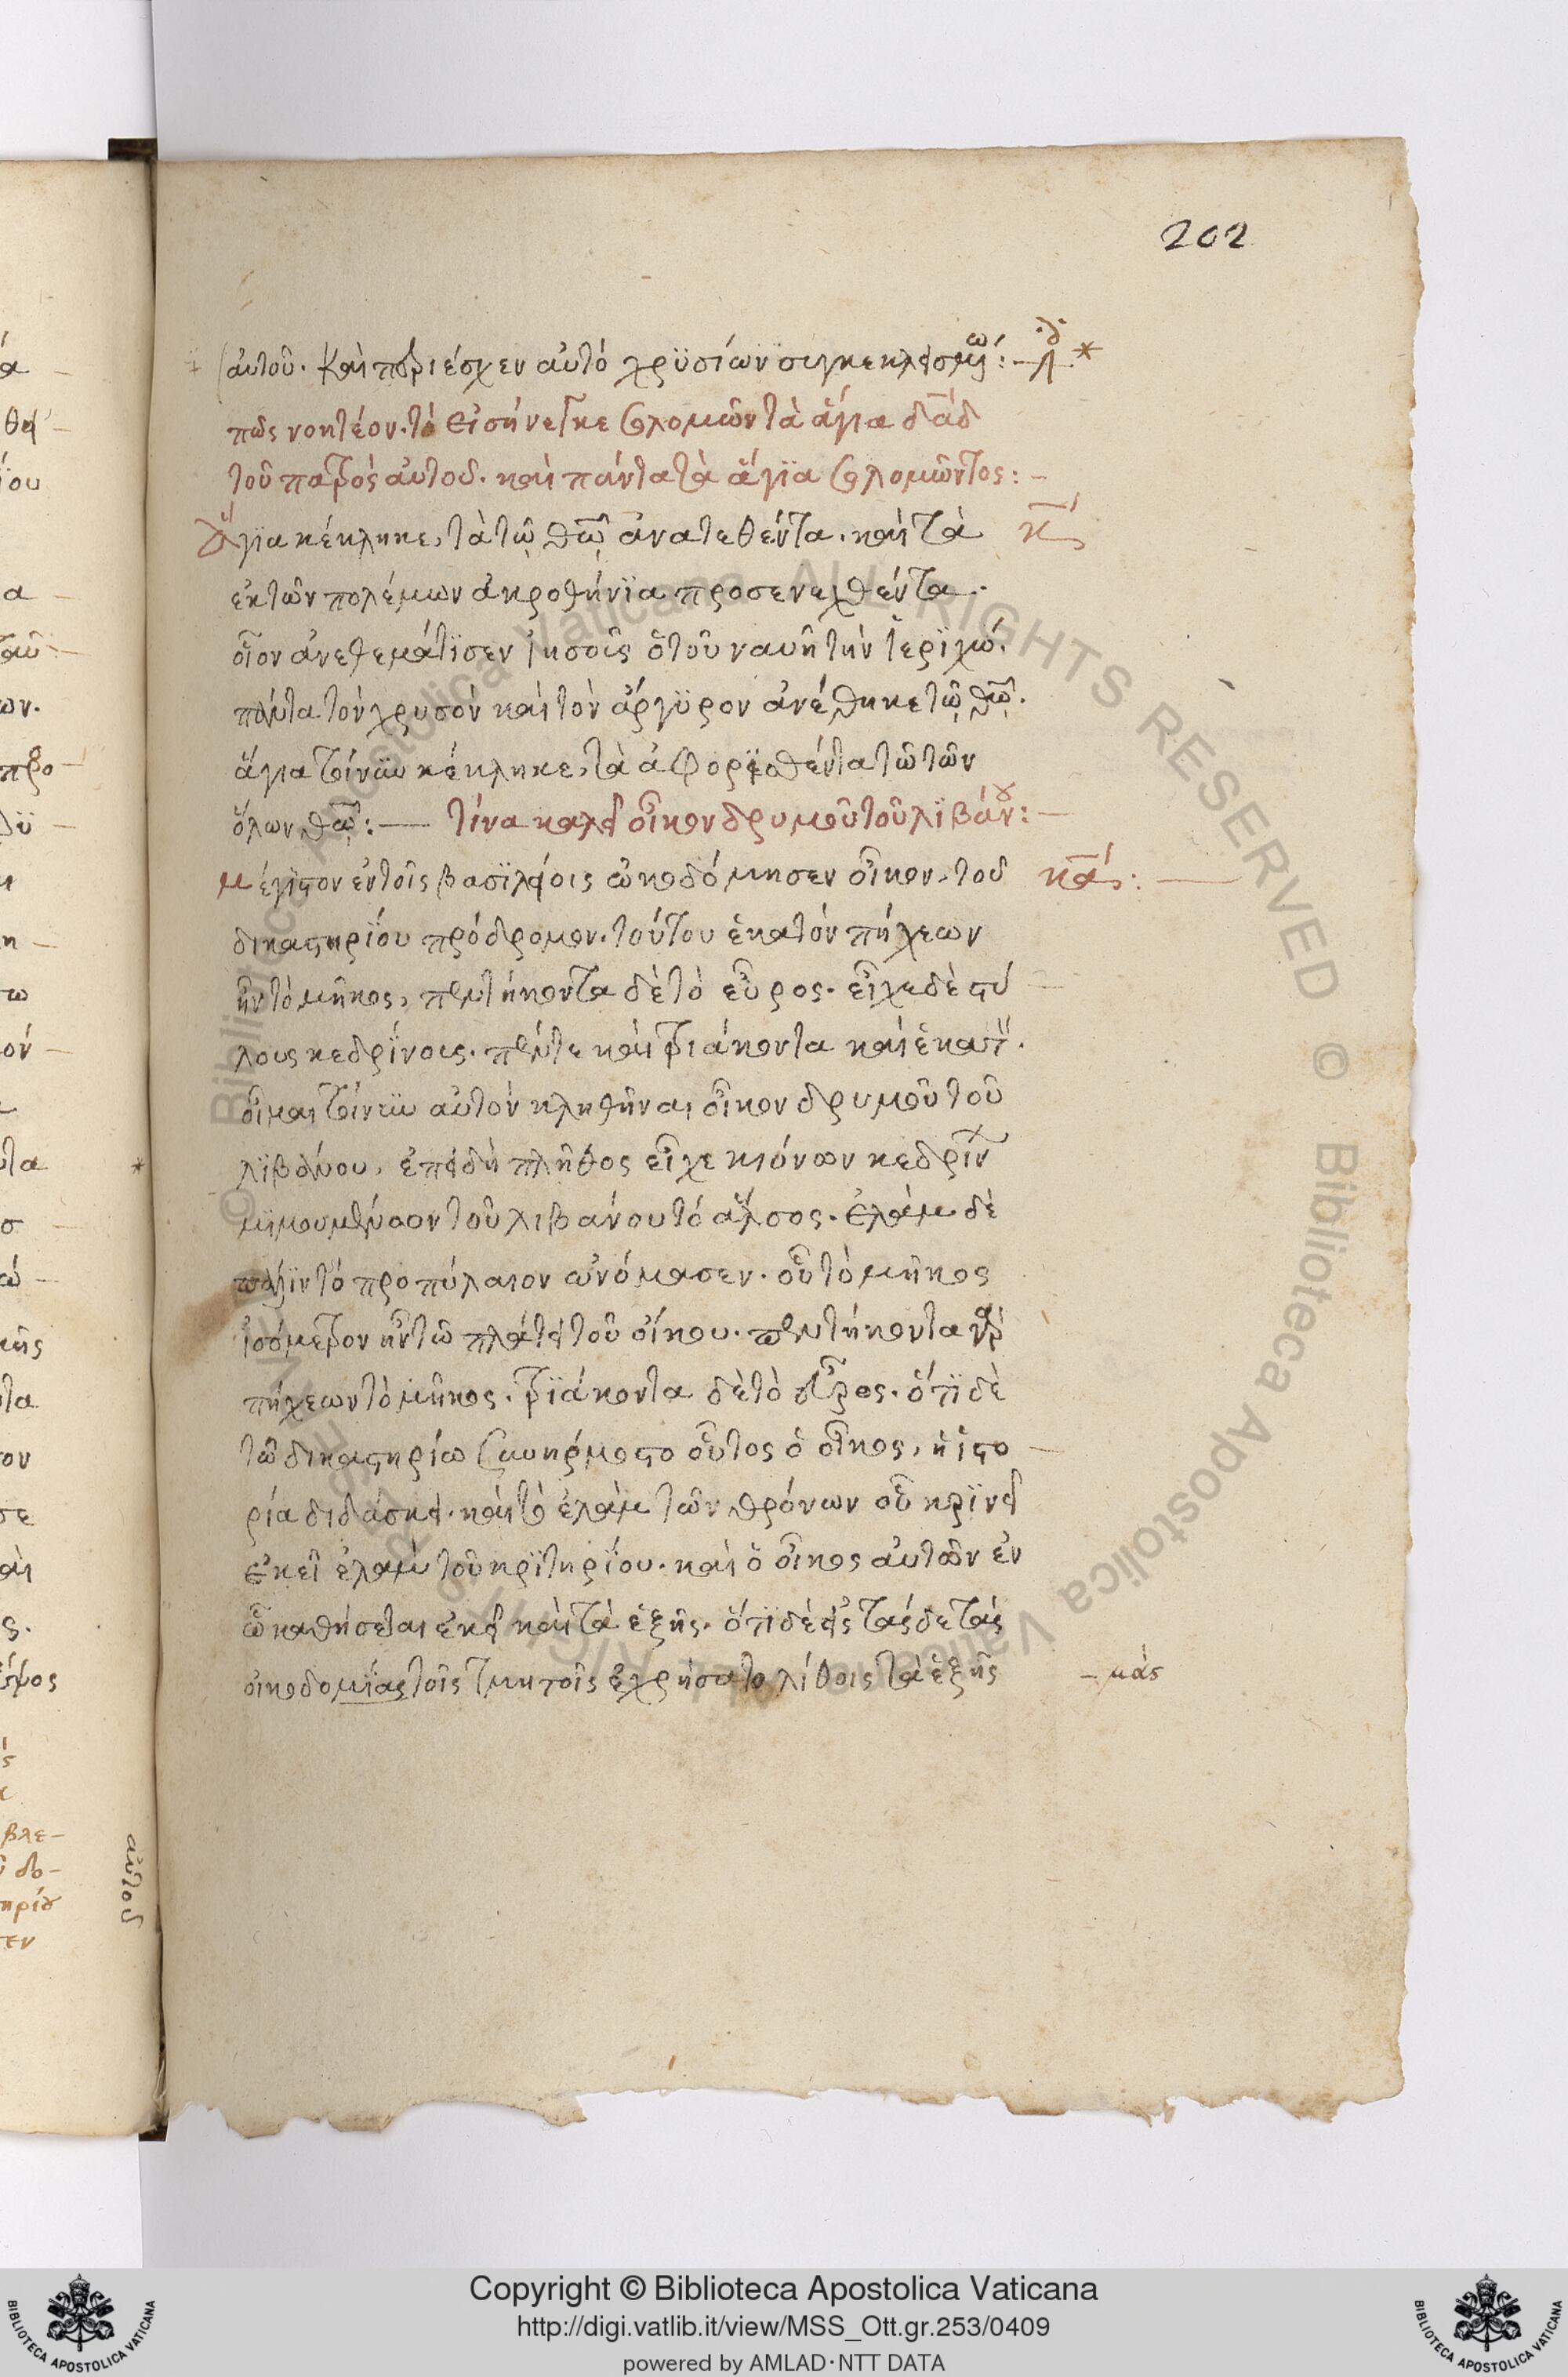 202
αὐτοῦ. καὶ περιέσχεν αὐτό χρϋσίω ϋσυγκεκλεισμω:
πῶς νοητέον. τὸ εἰσήνεγκε σολομῶν τὰ ἅγια δαδ
τοῦ πατρὸς αὐτοῦ. καὶ πάντα τὰ ἅγϊα σολομῶντος:-
Ἅγια κέκληκε, τὰ τῶ θω ἀνατεθέντα. καὶ τὰ κ
ἐκτῶν πολέμων ἀκροθήνϊα προσενεχθέντα.
οἷον ἀνεθεμάτϊσεν ἰησοῦς ὁ τοῦ ναυῆ τὴν ἰερϊχώ.
πάντα τὸν χρυσὸν καὶ τὸν ἄργϋρον ἀνέθηκε τῶ θω.
ἅγια τοίνυν κέκληκε, τὰ ἀφορϊσθέντα τῶ τῶν
ὅλων θω:— τίνα καλεῖ οἶκον δρυμοῦ τοῦ λϊβάνου:—
μέγιστον ἐν τοῖς βασϊλείοις ὠκοδόμησεν οἶκον, τοῦ κα:—
δικαστηρΐου πρόδρομον. τούτου ἑκατὸν πήχεων
ἦν τὸ μῆκος, πεντήκοντα δὲ τὸ εὖρος. εἶχε δὲ στύ
λους κεδρΐνους. πέντε καὶ τριάκοντα καὶ ἑκατὸ.
οἶμαι τοίνυν αὐτὸν κληθῆναι οἶκον δρυμοῦ τοῦ
λϊβάνου, ἐπειδὴ πλῆθος εἶχε κιόνων κεδρΐν
μϊμουμένων τοῦ λιβάνου τὸ ἄλσος. ἐλὰμ δὲ
πάλϊν τὸ προπύλαιον ὠνόμασεν. οὗ τὸ μῆκος
ἰσόμετρον ἦν τῶ πλάτει τοῦ οἴκου. πεντήκοντα γὰρ
πήχεων τὸ μῆκος. τριάκοντα δὲ τὸ εὖρος. ὅτϊ δὲ
τῶ δικαστηρίω συνήρμοστο οὗτος ὁ οἶκος, ἡ ἱστο
ρία διδάσκει. καὶ τὸ ἐλὰμ τῶν θρόνων οὗ κρϊνεῖ
ἐκεῖ ἐλαμ τοῦ κρϊτηρΐου. καὶ ὁ οἶκος αὐτῶν ἐν
ὧ καθήσεται ἐκεῖ καὶ τὰ ἑξῆς. ὅτϊ δὲ εἰς τάσδε τὰς
οἰκοδομΐας τοῖς τμητοῖς ἐχρήσατο λίθοις τὰ ἑξῆς -μὰς
αὐτοῦ